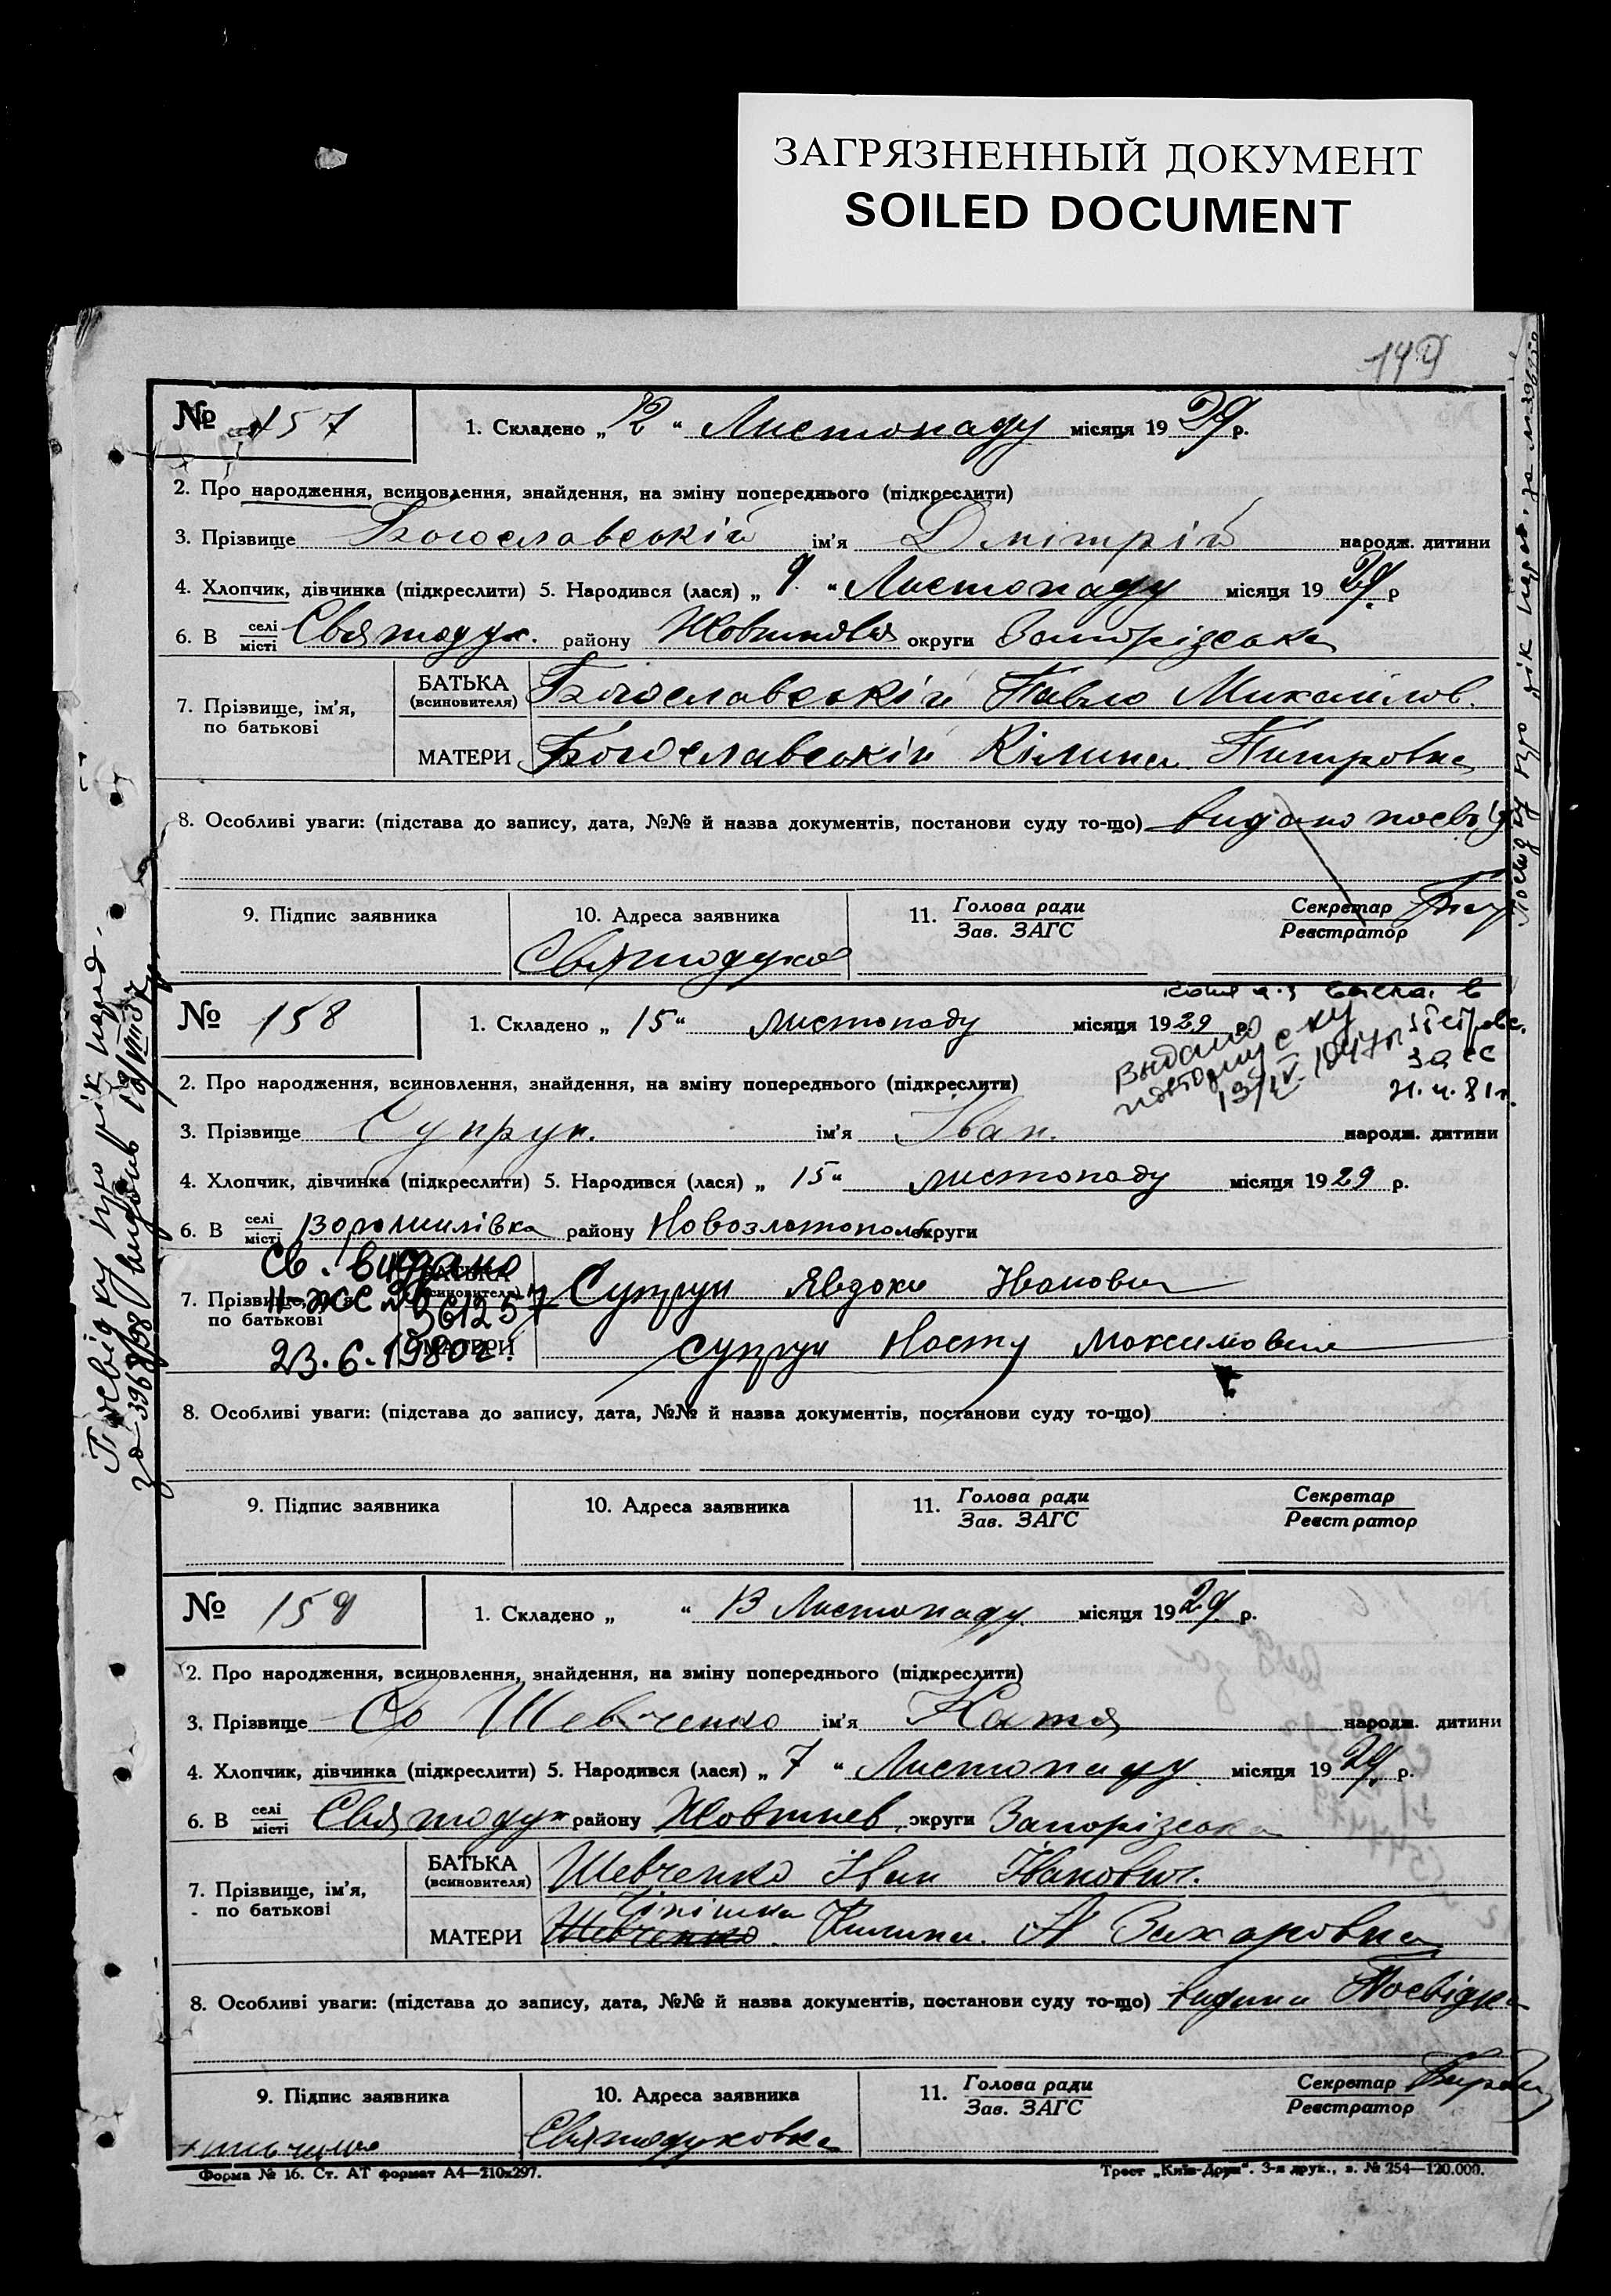 ЗАГРЯЗНЕННЫЙ ДОКУМЕНТ
SOILED DOCUMENT
149
№ 157 1. Складено „ 12 “ Листопаду місяця 1929 р.
2. Про народження, всиновлення, знайдення, на зміну попереднього (підкреслити)
3. Прізвище Богославській ім’я Дмітрій народж. дитини
4. Хлопчик, дівчинка (підкреслити) 5. Народився (лася) „ 9 “ Листопаду місяця 1929 р
6. В селі місті Святодух. району Жовтнева округи Запорізська
7. Прізвище, ім’я, по батькові
БАТЬКА (всиновителя) Богославській Павло Михайлов.
МАТЕРИ Богославській Кілина Питровна
8. Особливі уваги: (підстава до запису, дата, №№ й назва документів, постанови суду то-що) видано посвід
9. Підпис заявника 10. Адреса заявника 11. Голова ради Зав. ЗАГС Секретар Реєстратор
Святодухов
№ 158 1. Складено „ 15 “ листопаду місяця 1929 р.
Выдано повторку 13/IV 1947г
ЗАГС
21.4.81г.
2. Про народження, всиновлення, знайдення, на зміну попереднього (підкреслити)
3. Прізвище Супрун. ім’я Іван. народж. дитини
4. Хлопчик, дівчинка (підкреслити) 5. Народився (лася) „ 15 “ листопаду місяця 1929 р.
6. В селі місті Ворошилівка району Новозлотополь округи
Св. видано
II-ЖС № 361257
23.6.1980г.
7. Прізвище, ім’я, по батькові
БАТЬКА (всиновителя) Супрун Явдоки Иванович
МАТЕРИ Супрун Насту Максимовна
8. Особливі уваги: (підстава до запису, дата, №№ й назва документів, постанови суду то-що)
9. Підпис заявника 10. Адреса заявника 11. Голова ради Зав. ЗАГС Секретар Реєстратор
№ 159 1. Складено „ “ 13 Листопаду місяця 1929 р.
2. Про народження, всиновлення, знайдення, на зміну попереднього (підкреслити)
3. Прізвище Шевченко ім’я Катя народж. дитини
4. Хлопчик, дівчинка (підкреслити) 5. Народився (лася) „ 7 “ Листопаду місяця 1929 р.
6. В селі місті Святодух району Жовтнев округи Запорізська
7. Прізвище, ім’я, по батькові
БАТЬКА (всиновителя) Шевченко Іван Іванович.
МАТЕРИ Шевченко. Килина. Захаровна
8. Особливі уваги: (підстава до запису, дата, №№ й назва документів, постанови суду то-що) видана Посвідка
9. Підпис заявника 10. Адреса заявника 11. Голова ради Зав. ЗАГС Секретар Реєстратор
Святодуховка
Форма № 16. Ст. АТ формат А4—210х297.
Трест „Київ-Друк“. 3-я друк., з. № 254—120.000.
Посвідку про рік народ.
за 39687/98 видань 19/VIII 37